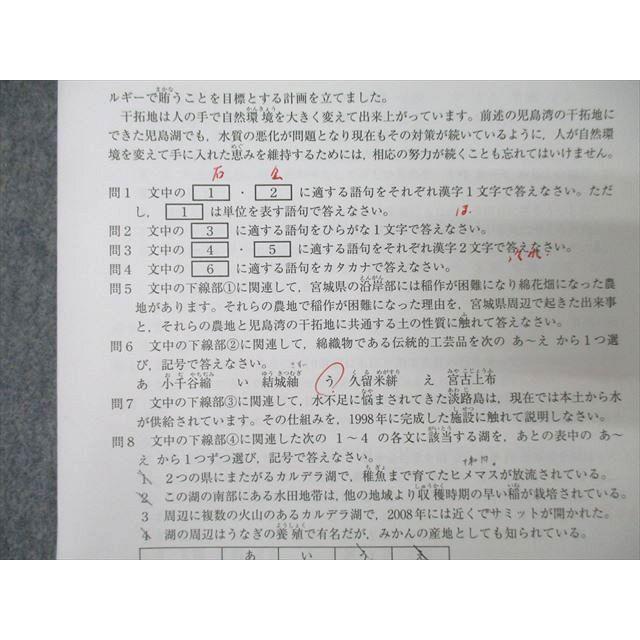 ルギーで賄うことを目標とする計画を立てました。
干拓地は人の手で自然環境を大きく変えて出来上がっています。前述の児島湾の干拓地に
できた児島湖でも，水質の悪化が問題となり現在もその対策が続いているように，人が自然環
境を変えて手に入れた恵みを維持するためには，相応の努力が続くことも忘れてはいけません。
石
問1 文中の 1 ・ 2 に適する語句をそれぞれ漢字1文字で答えなさい。ただ
し， 1 は単位を表す語句で答えなさい。
問2 文中の 3 に適する語句をひらがな1文字で答えなさい。
問3 文中の 4 ・ 5 に適する語句をそれぞれ漢字2文字で答えなさい。
問4 文中の 6 に適する語句をカタカナで答えなさい。
問5 文中の下線部①に関連して，宮城県の沿岸部には稲作が困難になり綿花畑になった農
地があります。それらの農地で稲作が困難になった理由を，宮城県周辺で起きた出来事
と，それらの農地と児島湾の干拓地に共通する土の性質に触れて答えなさい。
問6 文中の下線部②に関連して，綿織物である伝統的工芸品を次の あ～え から1つ選
び，記号で答えなさい。
あ 小千谷縮 い 結城紬 う 久留米絣 え 宮古上布
問7 文中の下線部③に関連して，水不足に悩まされてきた淡路島は，現在では本土から水
が供給されています。その仕組みを，1998年に完成した施設に触れて説明しなさい。
問8 文中の下線部④に関連した次の 1～4 の各文に該当する湖を，あとの表中の あ～
え から1つずつ選び，記号で答えなさい。
1 2つの県にまたがるカルデラ湖で，稚魚まで育てたヒメマスが放流されている。
2 この湖の南部にある水田地帯は，他の地域より収穫時期の早い稲が栽培されている。
3 周辺に複数の火山のあるカルデラ湖で，2008年には近くでサミットが開かれた。
4 湖の周辺はうなぎの養殖で有名だが，みかんの産地としても知られている。
あ い う え